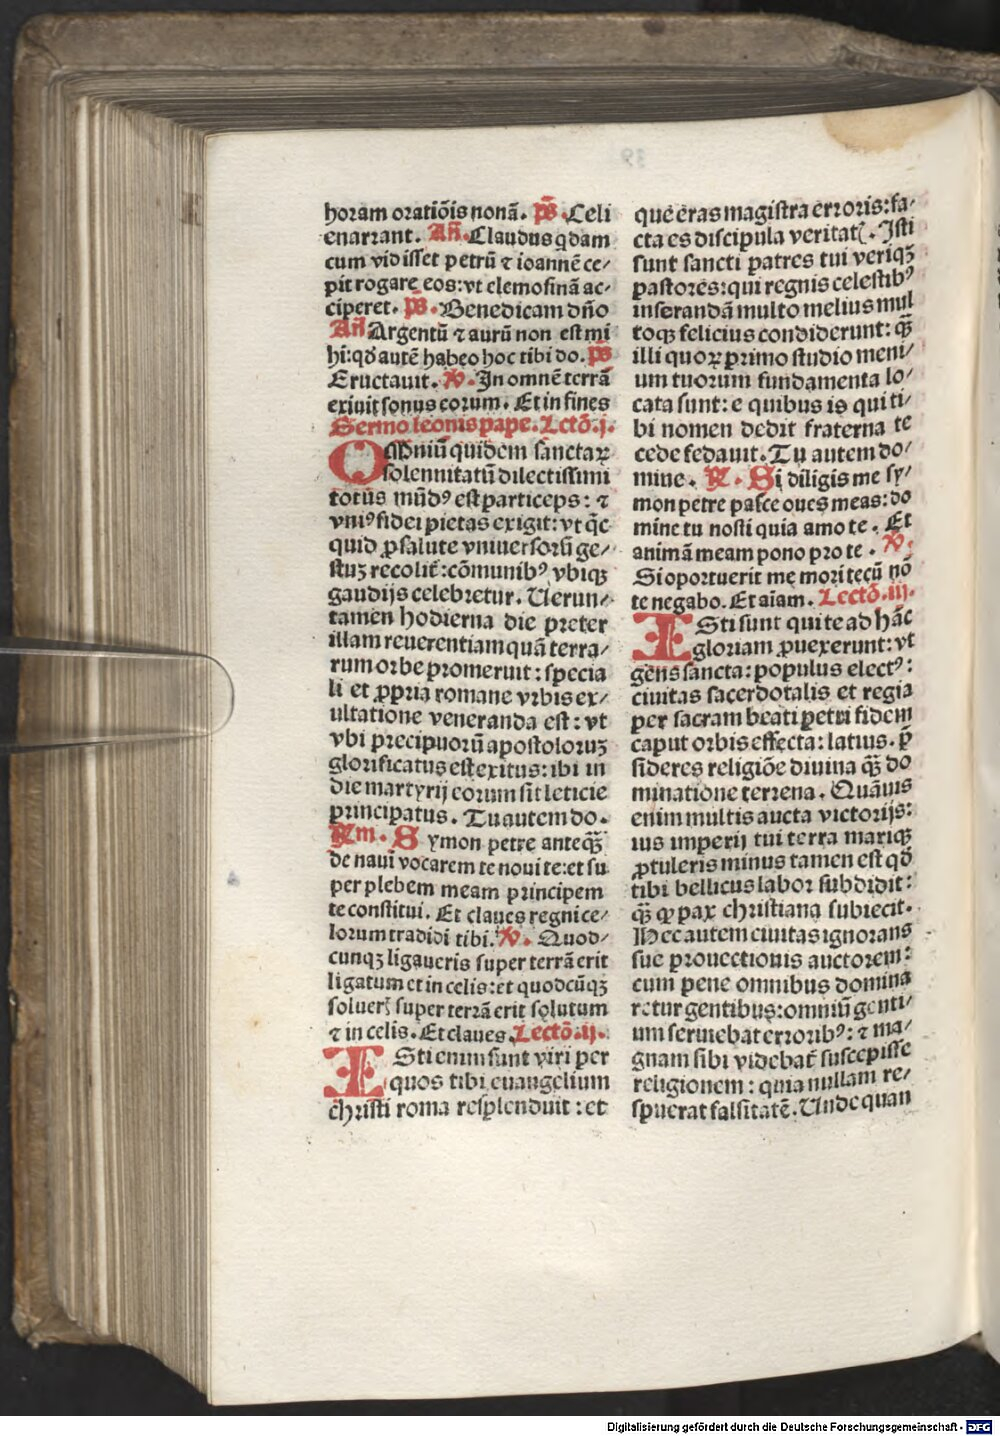 horam oratiõis nonã. p̃s. Celi
enarrant. Añ. Claudus qdam
cum vidisset petrũ ⁊ ioannẽ ce⸗
pit rogare eos: vt elemosinã ac⸗
ciperet. p̃s. Benedicam dño
Añ Argentũ ⁊ aurũ non est mi
hi: qđ autẽ habeo hoc tibi do. p̃s
Eructauit. ℣. In omnẽ terrã
exiuit sonus eorum. Et in fines
Sermo leonis pape. Lctõ. j.
OMniũ quidem sanctaꝝ
solennitatũ dilectissimi
totus mũdꝰ est particeps: ⁊
vniꝰ fidei pietas exigit: vt qͥc
quid ꝓ salute vniuersorũ ge⸗
stuꝫ recolit̃: cõmunibꝰ vbiqꝫ
gaudijs celebretur. Uerun⸗
tamen hodierna die preter
illam reuerentiam quã terra⸗
rum orbe promeruit: specia
li et ꝓpria romane vrbis ex⸗
ultatione veneranda est: vt
vbi precipuorũ apostoloruꝫ
glorificatus est exitus: ibi in
die martyrij eorum sit leticie
principatus. Tu autem do.
℟m. Symon petre anteqꝫ̃
de naui vocarem te noui te: et su
per plebem meam principem
te constitui. Et claues regni ce⸗
lorum tradidi tibi. ℣. Quod⸗
cunqꝫ ligaueris super terrã erit
ligatum et in celis: et quodcũqꝫ
soluerꝭ super terrã erit solutum
⁊ in celis. Et claues. Lectõ. ij.
ISti enim sunt viri per
quos tibi euangelium
christi roma resplenduit: et
que eras magistra erroris: fa⸗
cta es discipula veritatꝭ. Isti
sunt sancti patres tui veriqꝫ
pastores: qui regnis celestibꝰ
inserandã multo melius mul
toqꝫ felicius condiderunt: qꝫ̃
illi quoꝝ primo studio meni⸗
um tuorum fundamenta lo⸗
cata sunt: e quibus is qui ti⸗
bi nomen dedit fraterna te
cede fedauit. Tu autem do⸗
mine. ℟. Si diligis me sy⸗
mon petre pasce oues meas: do
mine tu nosti quia amo te. Et
animã meam pono pro te. ℣.
Si oportuerit me mori tecũ nõ
te negabo. Et aĩam. Lectõ. iij.
ISti sunt qui te ad hãc
gloriam ꝓuexerunt: vt
gens sancta: populus electꝰ:
ciuitas sacerdotalis et regia
per sacram beati petri fidem
caput orbis effecta: latius. p̃
sideres religiõe diuina qꝫ̃ do
minatione terrena. Quãuis
enim multis aucta victorijs:
ius imperij tui terra mariqꝫ
ꝓtuleris minus tamen est qđ
tibi bellicus labor subdidit:
qꝫ̃ qđ pax christiana subiecit.
Hec autem ciuitas ignorans
sue prouectionis auctorem:
cum pene omnibus domina
retur gentibus: omniũ genti⸗
um seruiebat erroribꝰ: ⁊ ma⸗
gnam sibi videbat̃ suscepisse
religionem: quia nullam re⸗
spuerat falsitatẽ. Unde quan
Digitalisierung gefördert durch die Deutsche Forschungsgemeinschaft - DFG